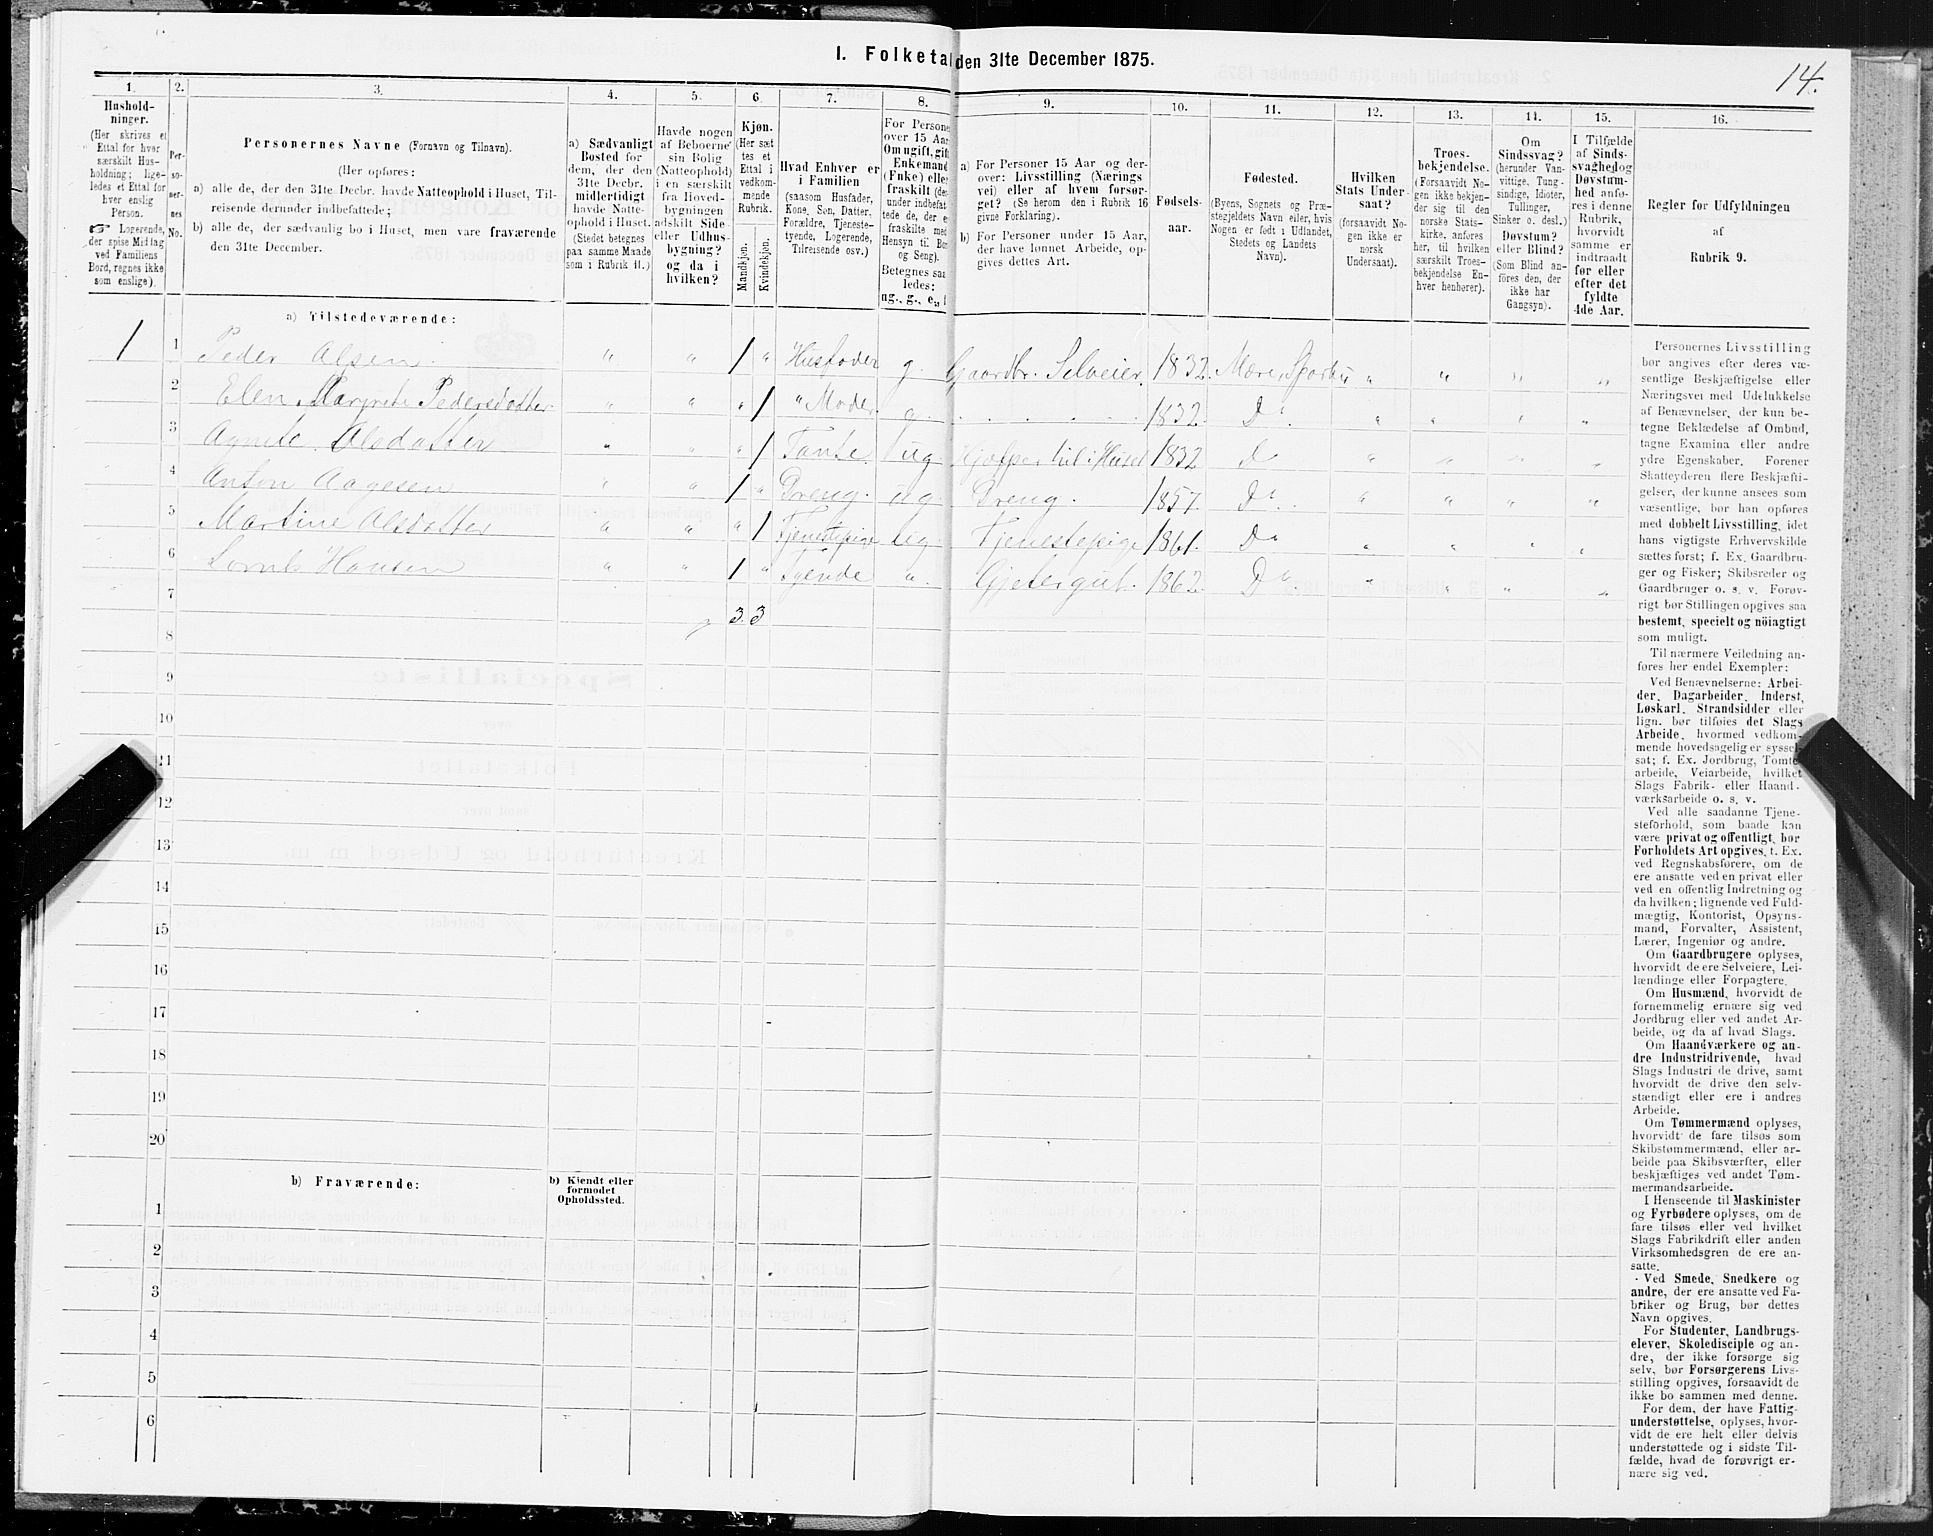 I. Folketal den 31te December 1875.
14.
1.
2.
3.
4.
5.
6.
7.
8.
9.
10.
11.
12.
13.
14.
15.
16.
Hushold-
ninger.
(Her skrives et
Ettal for hver
særskilt Hus-
holdning; lige-
ledes et Ettal for
hver enslig
Person.
☞ Logerende,
der spise Middag
ved Familiens
Bord, regnes ikke
som enslige).
Per-
so-
ner-
nes
No.
Personernes Navne (Fornavn og Tilnavn).
(Her opføres:
a) alle de, der den 31te Decbr. havde Natteophold i Huset, Til-
reisende derunder indbefattede;
b) alle de, der sædvanlig bo i Huset, men vare fraværende
den 31te December.
a) Sædvanligt
Bosted for
dem, der den
31te Decbr.
midlertidigt
havde Natte-
ophold i Huset.
(Stedet betegnes
paa samme Maade
som i Rubrik 11.)
Havde nogen
af Beboerne
sin Bolig
(Natteophold)
i en særskilt
fra Hoved-
bygningen
adskilt Side-
eller Udhus-
bygning?
og da i
hvilken?
Kjøn.
(Her sæt-
tes et
Ettal i
vedkom-
mende
Rubrik.
Mandkjøn.
Kvindekjøn.
Hvad Enhver er
i Familien
(saasom Husfader,
Kone, Søn, Datter,
Forældre, Tjeneste-
tyende, Logerende,
Tilreisende osv.)
For Persone
over 15 Aar
Om ugift, gift
Enkemand
(Enke) eller
fraskilt (der-
under indbefat-
tede de, der ere
fraskilte med
Hensyn til Bord
og Seng).
Betegnes saa-
ledes:
ug., g., e., f
a) For Personer 15 Aar og der-
over: Livsstilling (Nærings-
vei) eller af hvem forsør-
get? (Se herom den i Rubrik 16
givne Forklaring).
b) For Personer under 15 Aar,
der have lønnet Arbeide, op-
gives dettes Art.
Fødsels-
aar.
Fødested.
(Byens, Sognets og Præ-
stegjeldets Navn eller, hvis
Nogen er født i Udlandet,
Stedets og Landets
Navn).
Hvilken
Stats Under-
saat?
(forsaavidt No-
gen ikke er
norsk
Undersaat).
Troes-
bekjendelse.
(Forsaavidt No-
gen ikke bekjen-
der sig til den
norske Stats-
kirke, anføres
her, til hvilken
særskilt Troes-
bekjendelse En-
hver henhører).
Om
Sindssvag?
(herunder Van-
vittige, Tung-
sindige, Idioter,
Tullinger,
Sinker o. desl.)
Døvstum?
eller Blind?
(Som Blind an-
føres den, der
ikke har
Gangsyn).
I Tilfælde
af Sinds-
svaghed og
Døvstum-
hed anfø-
res i denne
Rubrik,
hvorvidt
samme er
indtraadt
før eller
efter det
fyldte
4de Aar.
Regler for Udfyldningen
af
Rubrik 9.
a) Tilstedeværende:
1 1 Peder Olsen " " 1 " Husfader g. Gaardbr. Selveier. 1832. Mære, Sparbu " " " "
2 Elen Margrete Pedersdatter " " " 1 " Moder. g. 1832. Do. " " " "
3 Agnete Olsdatter " " " 1 Tante ug. Hjælper til i Huset 1832 Do " " " "
4 Anton Aagesen " " 1 " Dreng. ug. Dreng. 1857. Do. " " " "
5 Martine Olsdatter " " " 1 Tjenestepige ug. Tjenestepige 1861. Do " " " "
6 Hansen " " 1 " Tyende ". Gjetergut. 1862. Do. " " " "
7 3. 3
8
9
10
11
12
13
14
15
16
17
18
19
20
b) Fraværende:
b) Kjendt eller
formodet
Opholdssted.
1
2
3
4
5
6
Personernes Livsstilling
bør angives efter deres væ-
sentlige Beskjæftigelse eller
Næringsvei med Udelukkelse
af Benævnelser, der kun be-
tegne Beklædelse af Ombud,
tagne Examina eller andre
ydre Egenskaber. Forener
Skatteyderen flere Beskjæfti-
gelser, der kunne ansees som
væsentlige, bør han opføres
med dobbelt Livsstilling, idet
hans vigtigste Erhvervskilde
sættes først; f. Ex. Gaardbru-
ger og Fisker; Skibsreder og
Gaardbruger o. s. v. Forøv-
rigt bør Stillingen opgives saa
bestemt, specielt og nöiagtigt
som muligt.
Til nærmere Veiledning an-
føres her endel Exempler:
Ved Benævnelserne: Arbei-
der, Dagarbeider, Inderst,
Løskarl, Strandsidder eller
lign. bør tilføies det Slags
Arbeide, hvormed vedkom-
mende hovedsagelig er syssel-
sat; f. Ex. Jordbrug, Tomte-
arbeide, Veiarbeide, hvilket
Slags Fabrik- eller Haand-
værksarbeide o. s. v.
Ved alle saadanne Tjene-
steforhold, som baade kan
være privat og offentligt, bør
Forholdets Art opgives, t. Ex.
ved Regnskabsførere, om de
ere ansatte ved en privat eller
ved en offentlig Indretning og
da hvilken; lignende ved Fuld-
mægtig, Kontorist, Opsyns-
mand, Forvalter, Assistent,
Lærer, Ingeniør og andre.
Om Gaardbrugere oplyses,
hvorvidt de ere Selveiere, Lei-
lændinge eller Forpagtere.
Om Husmænd, hvorvidt de
fornemmelig ernære sig ved
Jordbrug eller ved andet Ar-
beide, og da af hvad Slags.
Om Haandværkere og an-
dre Industridrivende, hvad
Slags Industri de drive, samt
hvorvidt de drive den selv-
stændigt eller ere i andres
Arbeide.
Om Tømmermænd oplyses,
hvorvidt de fare tilsøs som
Skibstømmermænd, eller ar-
beide paa Skibsværfter, eller
beskjæftiges ved andet Tøm-
mermandsarbeide.
I Henseende til Maskinister
og Fyrbødere oplyses, om de
fare tilsøs eller ved hvilket
Slags Fabrikdrift eller anden
Virksomhedsgren de ere an-
satte.
Ved Smede, Snedkere og
andre, der ere ansatte ved Fa-
briker og Brug, bør dettes
Navn opgives.
For Studenter, Landbrugs-
elever, Skoledisciple og an-
dre, der ikke forsørge sig
selv, bør Forsørgerens Livs-
stilling opgives, forsaavidt de
ikke bo sammen med denne.
For dem, der have Fattig-
understøttelse, oplyses, hvor-
vidt de ere helt eller delvis
understøttede og i sidste Til-
fælde, hvad de forøvrigt er-
nære sig ved.